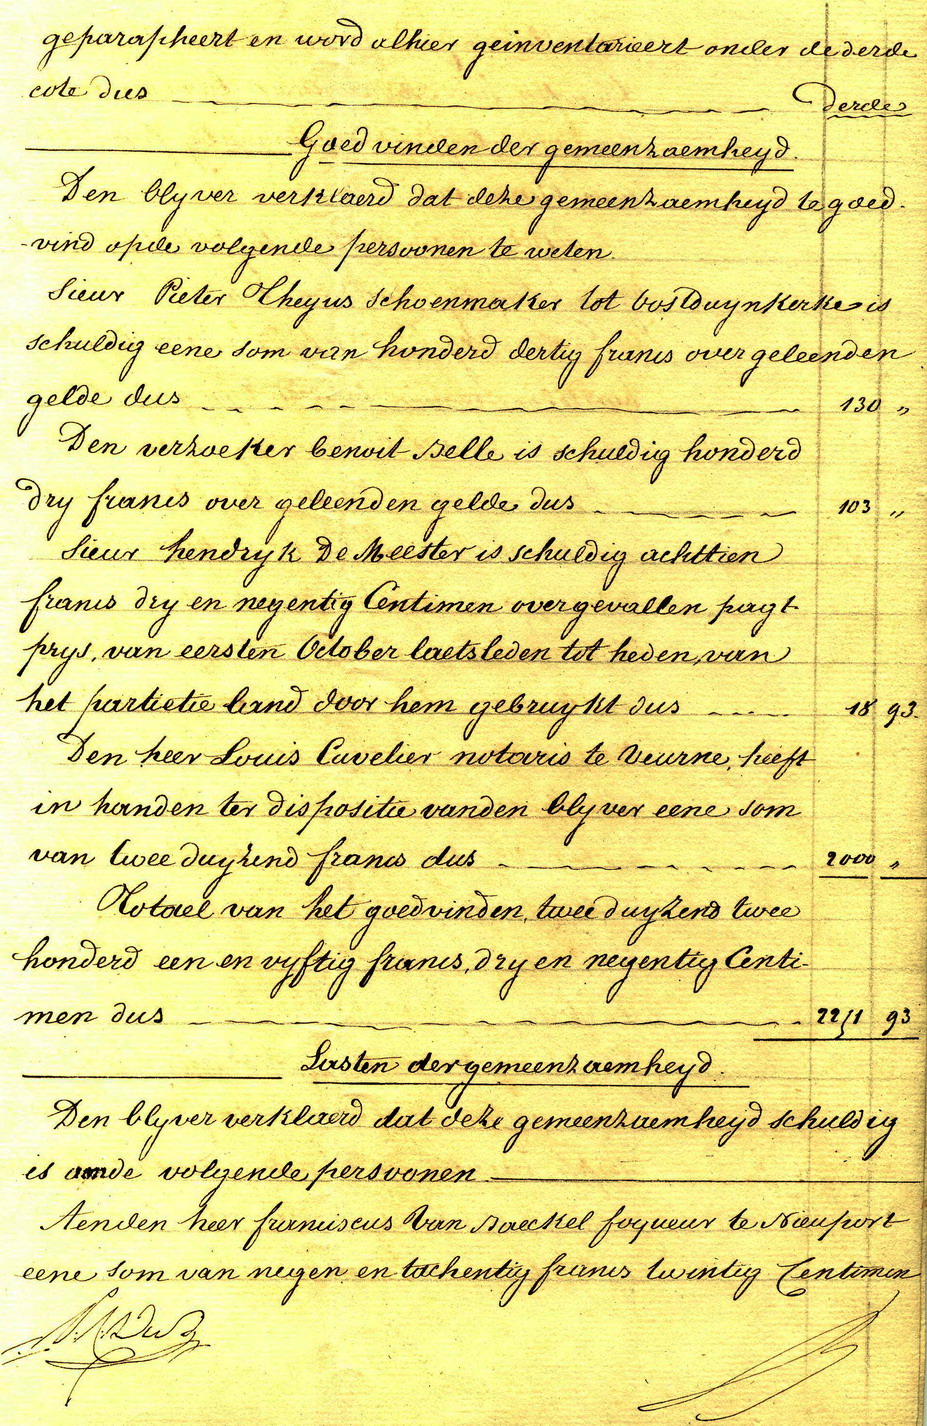 geparapheert en word alhier geinventarieert onder de derde
cote dus derde
Goedvinden der gemeenzaemheyd.
Den blyver verklaerd dat deze gemeenzaemheyd te goed-
-vind opde volgende persoonen te weten
Sieur Pieter Theyus schoenmaker tot oostduynkerke is
schuldig eene som van honderd dertig francs over geleenden
gelde dus 130 "
Den verzoeker benoit Selle is schuldig honderd
dry francs over geleenden gelde dus 103 "
Sieur hendryk De Meester is schuldig achttien
francs dry en negentig Centimen over gevallen pagt
prys, van eersten October laetsleden tot heden, van
het partietie land door hem gebruykt dus 18 93.
Den heer Louis Cuvelier notaris te Veurne, heeft
in handen ter dispositie vanden blyver eene som
van twee duyzend francs dus 2000 "
Totael van het goedvinden, twee duyzend twee
honderd een en vyftig francs, dry en negentig Centi-
men dus 2251 93
Lasten der gemeenzaemheyd.
Den blyver verklaerd dat deze gemeenzaemheyd schuldig
is aende volgende persoonen
Aenden heer franciscus Van Baeckel foqueur te Nieuport
eene som van negen en tachentig francs twintig Centimen